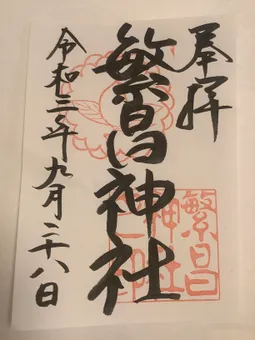 奉拝
繁昌神社
繁昌
神社
令和三年九月二十八日